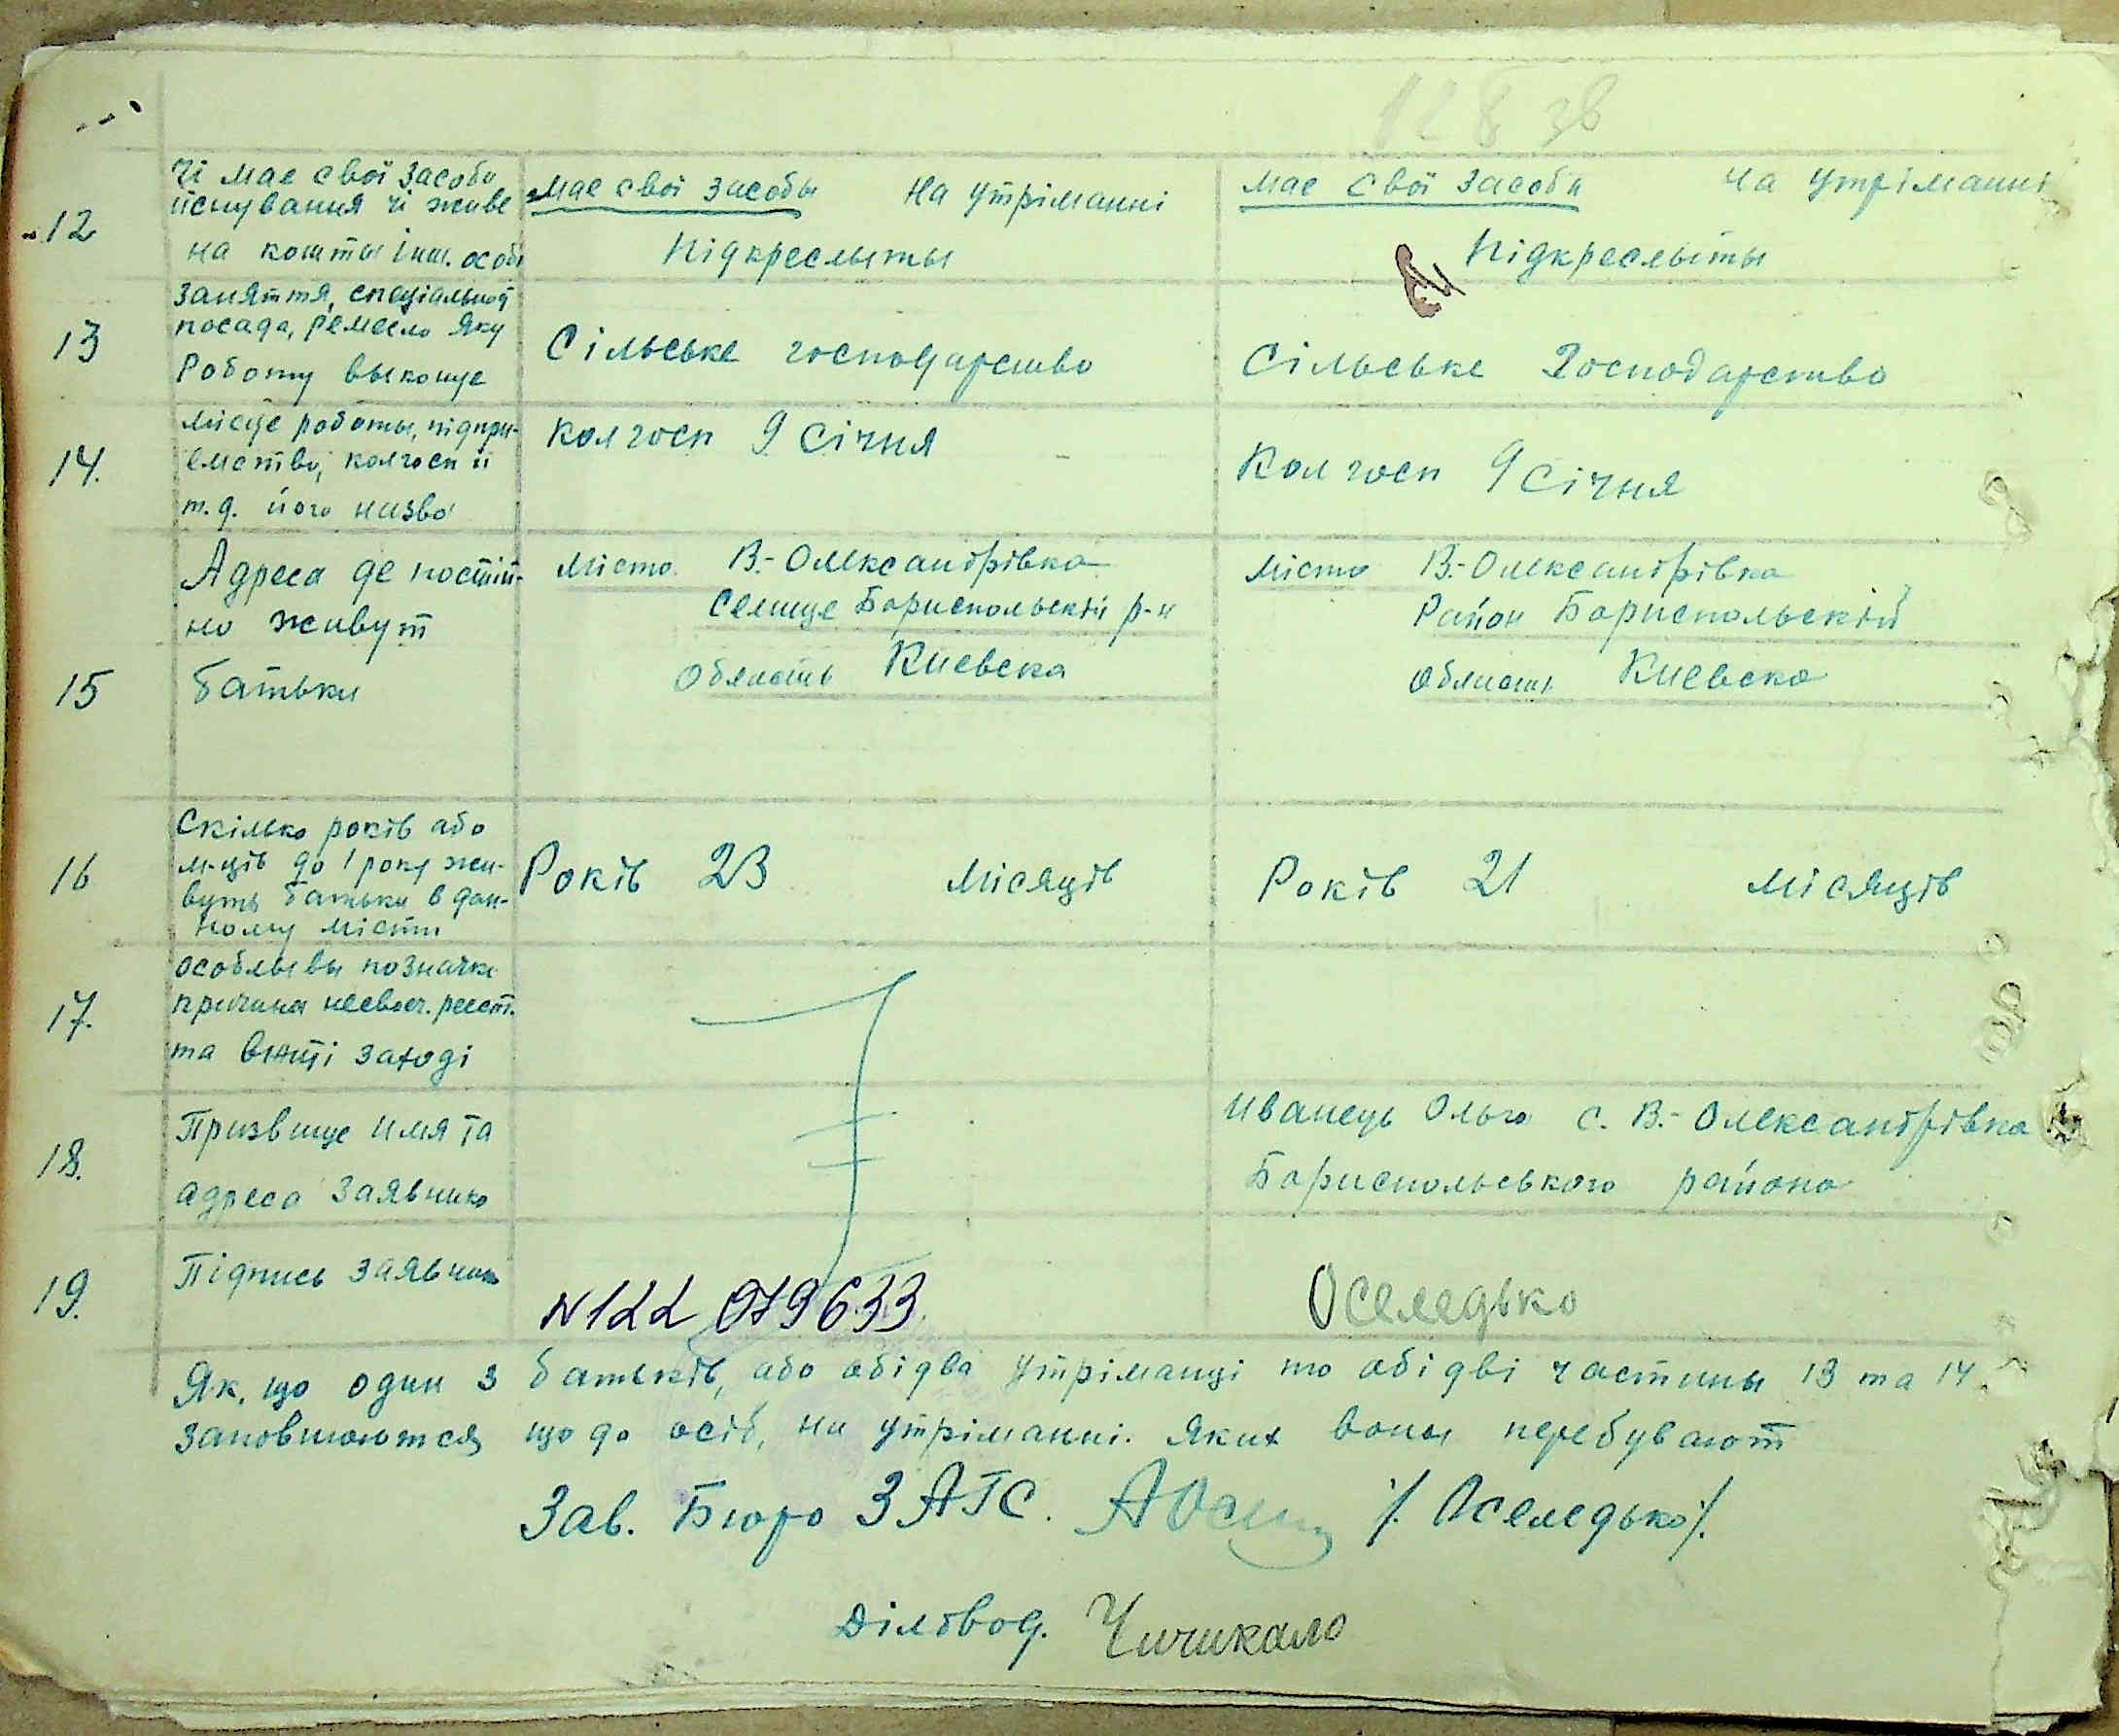 128 зв
12
Чі має свої засобы
існування чі живе
на кошты інш. особ
має свої засобы На утріманні
підкреслыты
має свої засоби на утріманні
підкреслыты
13
Заняття, спеціальност
посада, ремесло яку
роботу выконує
Сільське господарство
Сільське господарство
14.
місце работы, підпри-
емство, колгосп и
т.д. його назва
Колгосп 9 Січня
Колгосп 9 Січня
15
Адреса де постій-
но живут
батьки
місто В.-Олександрівка
селище Бориспольскій р-н
Область Киевска
місто В.-Олександрівка
Район Бориспольскій
Область Киевска
16
Скілько років або
м-ців до 1 року жи-
вуть батьки в дан-
ному місті
Років 23 місяців
Років 21 місяців
17.
особлывы позначкі
причина несвоєч. реєст.
та вжиті заході
18.
Призвище имя та
адреса заявника
Иванець Ольга с. В.-Олександрівка
Бориспольського района
19.
Підпись заявника
N122 079633
Оселедько
Як, що один з батьків, або обідва утріманці то обідві частины 13 та 14
заповнюются що до осіб, на утріманні. яких воны перебувают
Зав. Бюро ЗАГС. /. Оселедько/.
Діловод. Чичикало